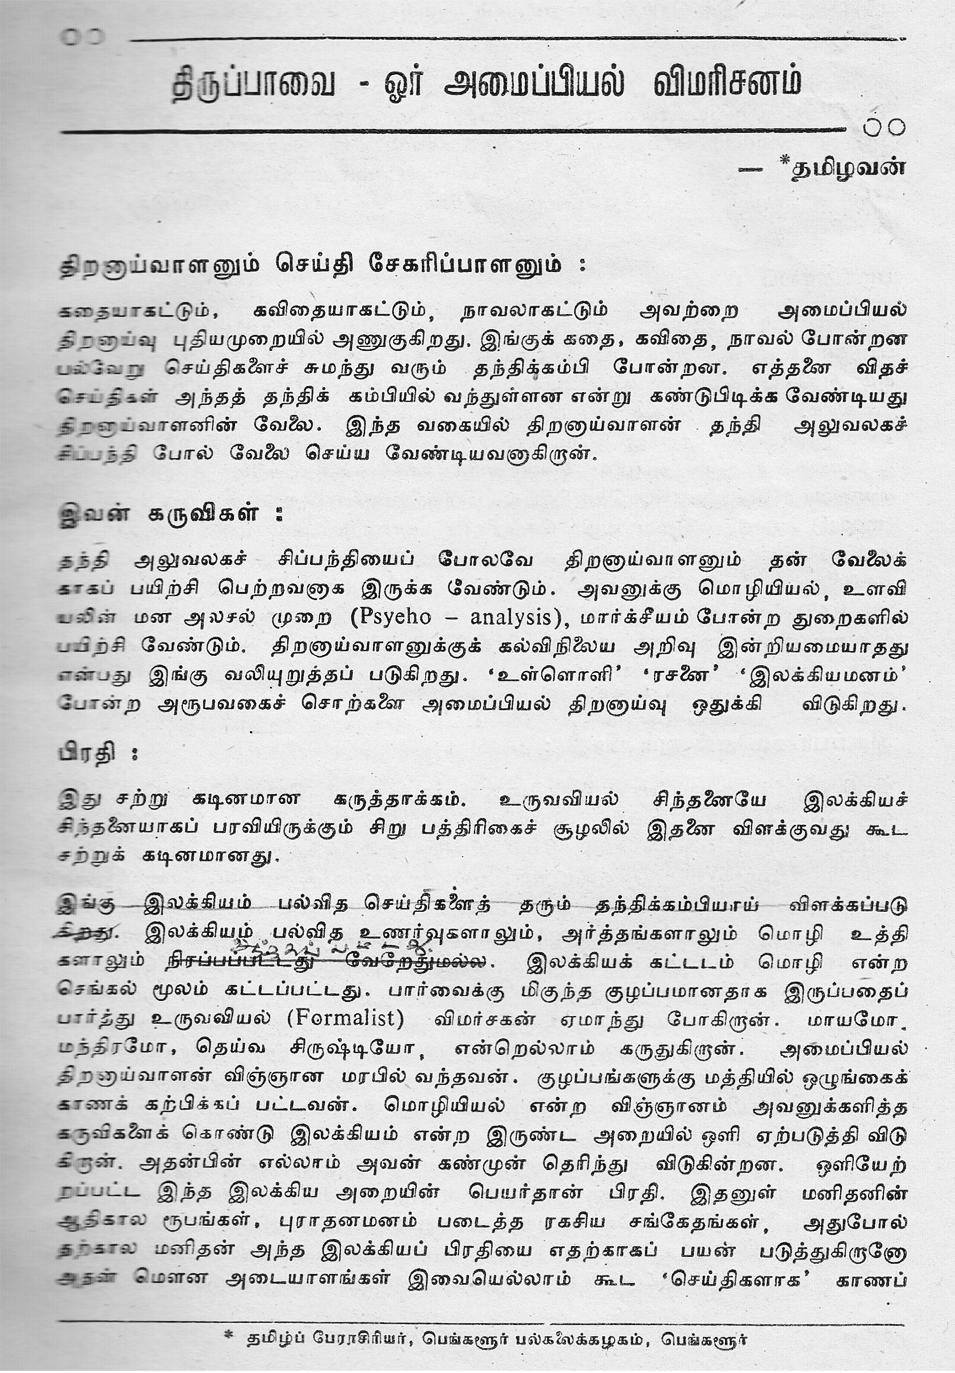 திருப்பாவை - ஓர் அமைப்பியல் விமரிசனம்
— *தமிழவன்
திறனாய்வாளனும் செய்தி சேகரிப்பாளனும் :
கதையாகட்டும், கவிதையாகட்டும், நாவலாகட்டும் அவற்றை அமைப்பியல்
திறனாய்வு புதியமுறையில் அணுகுகிறது. இங்குக் கதை, கவிதை, நாவல் போன்றன
பல்வேறு செய்திகளைச் சுமந்து வரும் தந்திக்கம்பி போன்றன. எத்தனை விதச்
செய்திகள் அந்தத் தந்திக் கம்பியில் வந்துள்ளன என்று கண்டுபிடிக்க வேண்டியது
திறனாய்வாளனின் வேலை. இந்த வகையில் திறனாய்வாளன் தந்தி அலுவலகச்
சிப்பந்தி போல் வேலை செய்ய வேண்டியவனாகிறான்.
இவன் கருவிகள் :
தந்தி அலுவலகச் சிப்பந்தியைப் போலவே திறனாய்வாளனும் தன் வேலைக்
காகப் பயிற்சி பெற்றவனாக இருக்க வேண்டும். அவனுக்கு மொழியியல், உளவி
யலின் மன அலசல் முறை (Psyeho – analysis), மார்க்சீயம் போன்ற துறைகளில்
பயிற்சி வேண்டும். திறனாய்வாளனுக்குக் கல்விநிலைய அறிவு இன்றியமையாதது
என்பது இங்கு வலியுறுத்தப் படுகிறது. ‘உள்ளொளி’ ‘ரசனை’ ‘இலக்கியமனம்’
போன்ற அரூபவகைச் சொற்களை அமைப்பியல் திறனாய்வு ஒதுக்கி விடுகிறது.
பிரதி :
இது சற்று கடினமான கருத்தாக்கம். உருவவியல் சிந்தனையே இலக்கியச்
சிந்தனையாகப் பரவியிருக்கும் சிறு பத்திரிகைச் சூழலில் இதனை விளக்குவது கூட
சற்றுக் கடினமானது.
இங்கு இலக்கியம் பல்வித செய்திகளைத் தரும் தந்திக்கம்பியாய் விளக்கப்படு
கிறது. இலக்கியம் பல்வித உணர்வுகளாலும், அர்த்தங்களாலும் மொழி உத்தி
களாலும் நிரப்பப்பட்டது வேறேதுமல்ல. இலக்கியக் கட்டடம் மொழி என்ற
செங்கல் மூலம் கட்டப்பட்டது. பார்வைக்கு மிகுந்த குழப்பமானதாக இருப்பதைப்
பார்த்து உருவவியல் (Formalist) விமர்சகன் ஏமாந்து போகிறான். மாயமோ,
மந்திரமோ, தெய்வ சிருஷ்டியோ, என்றெல்லாம் கருதுகிறான். அமைப்பியல்
திறனாய்வாளன் விஞ்ஞான மரபில் வந்தவன். குழப்பங்களுக்கு மத்தியில் ஒழுங்கைக்
காணக் கற்பிக்கப் பட்டவன். மொழியியல் என்ற விஞ்ஞானம் அவனுக்களித்த
கருவிகளைக் கொண்டு இலக்கியம் என்ற இருண்ட அறையில் ஒளி ஏற்படுத்தி விடு
கிறான். அதன்பின் எல்லாம் அவன் கண்முன் தெரிந்து விடுகின்றன. ஒளியேற்
றப்பட்ட இந்த இலக்கிய அறையின் பெயர்தான் பிரதி. இதனுள் மனிதனின்
ஆதிகால ரூபங்கள், புராதனமனம் படைத்த ரகசிய சங்கேதங்கள், அதுபோல்
தற்கால மனிதன் அந்த இலக்கியப் பிரதியை எதற்காகப் பயன் படுத்துகிறானோ
அதன் மௌன அடையாளங்கள் இவையெல்லாம் கூட ‘செய்திகளாக’ காணப்
* தமிழ்ப் பேராசிரியர், பெங்களூர் பல்கலைக்கழகம், பெங்களூர்